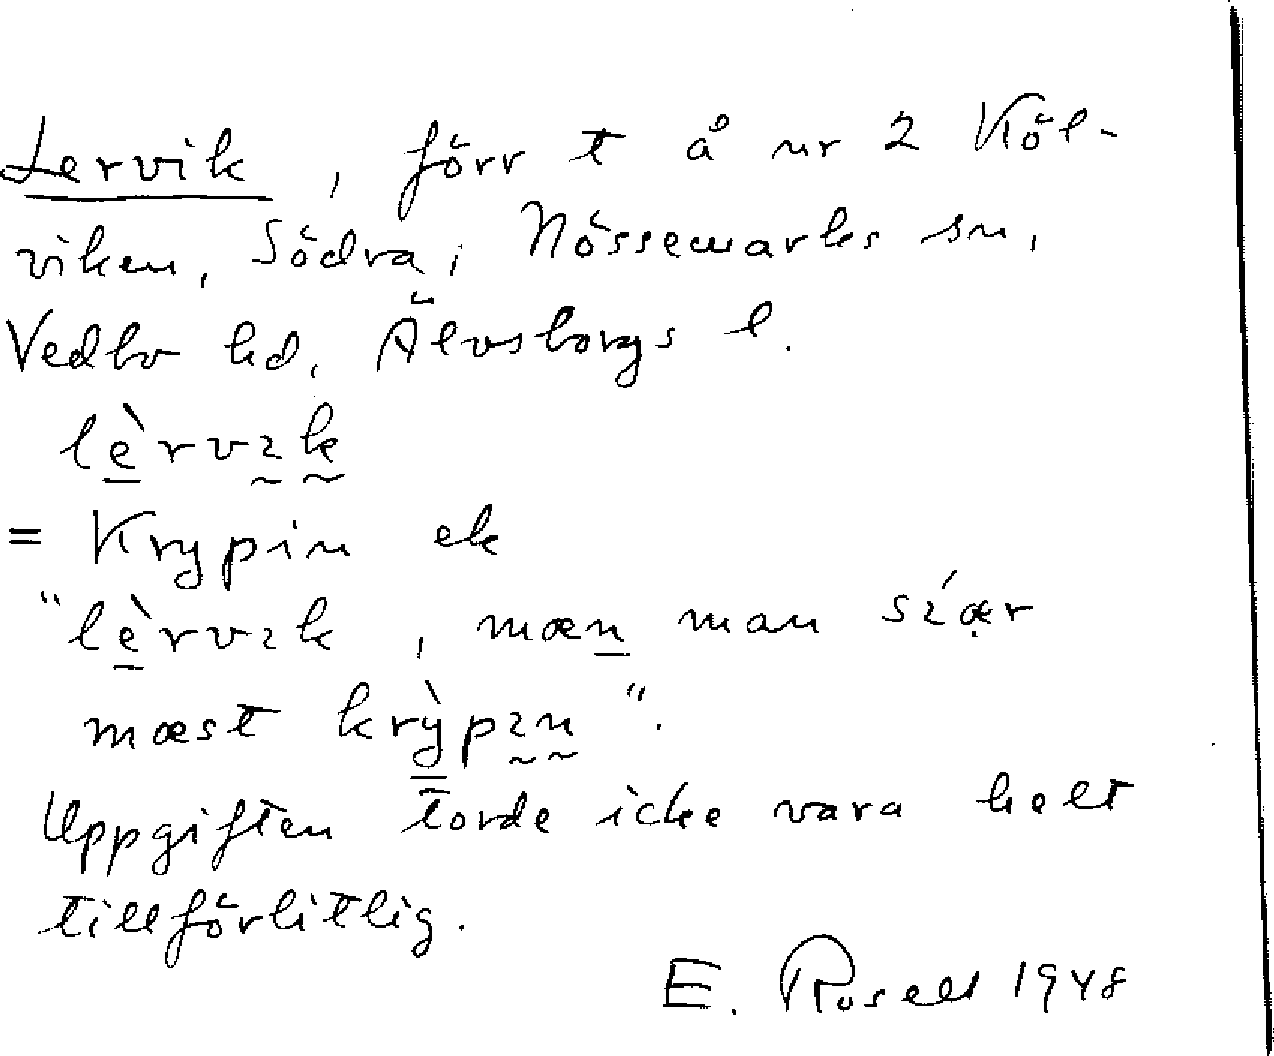 Lervik, förr t å nr 2 Köl-
viken, Södra, Nössemarks sn,
Vedbo hd, Älvsborgs l.
lèrvɩk
= Krypin ek
"lèrvɩk, mæn man sɩ́ær
mæst krỳpɩn".
Uppgiften torde icke vara helt
tillförlitlig.
E. Rosell 1948